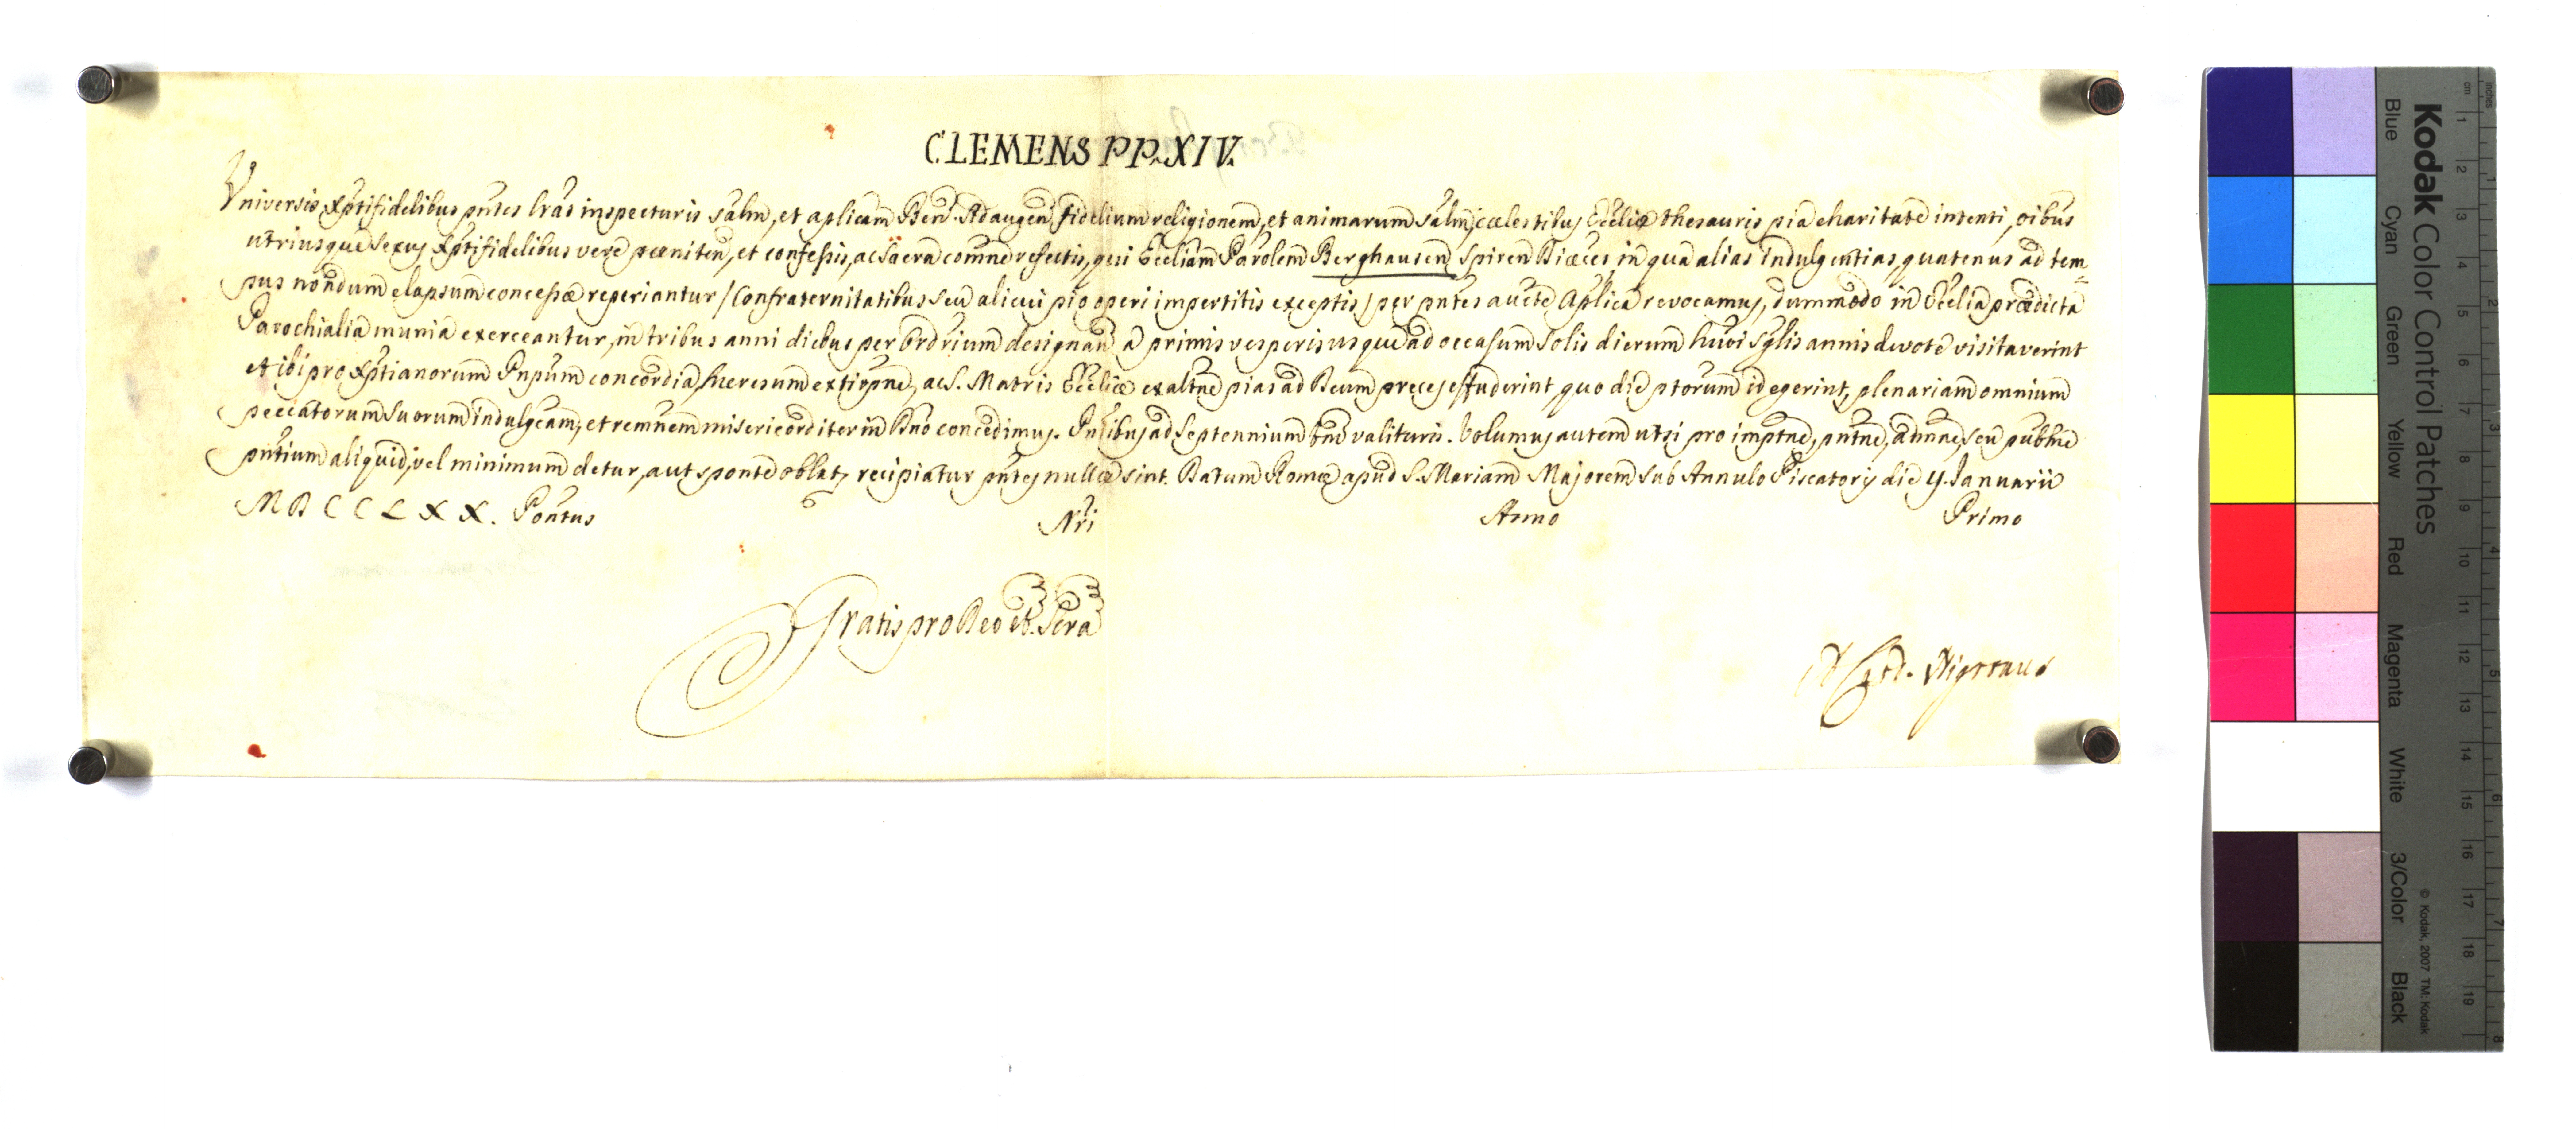 CLEMENS PP. XIV.
Universis Xptifidelibus pntes lras inspecturis salm, et aplicam Ben. Ad augen fidelium religionem, et animarum salm, cælestibus Ecclię thesauris pia charitate intenti, oibus
utriusque sexus Xptifidelibus verè pœniten, et confessis, ac sacra comne refectis, qui Eccliam Parolem Berghausen Spiren Diœces, in qua alias indulgentias, quatenus ad tem=
pus nondum elapsum concessæ reperiantur / Confraternitatibus seu alicui pio operi impertitis exceptis / per pntes aucte Aplica revocamus, dummodo in Ecclia prædicta
Parochialia munia exerceantur, in tribus anni diebus per Ordrium designan a primis vesperis usque ad occasum Solis dierum huōi sglis annis devotè visitaverint
et ibi pro Xptianorum Pnpum concordia, hæresum extirpne, ac S. Matris Ecclię exaltne pias ad Deum preces effuderint, quo die ptorum id egerint, plenariam omnium
peccatorum suorum indulgeam, et remnem misericorditer in Dno concedimus. Pntibus ad Septennium tne valituris. Volumus autem ut si pro imptne, pntne, admne, seu publne
pntium aliquid, vel minimum detur, aut sponte oblat, recipiatur pntes nullæ sint. Datum Romæ apud S. Mariam Majorem sub Annulo Piscatoris die 9. Januarii
MDCCLXX. Pontus Nri Anno Primo
Gratis pro Deo et Scra
Card. Nigronus